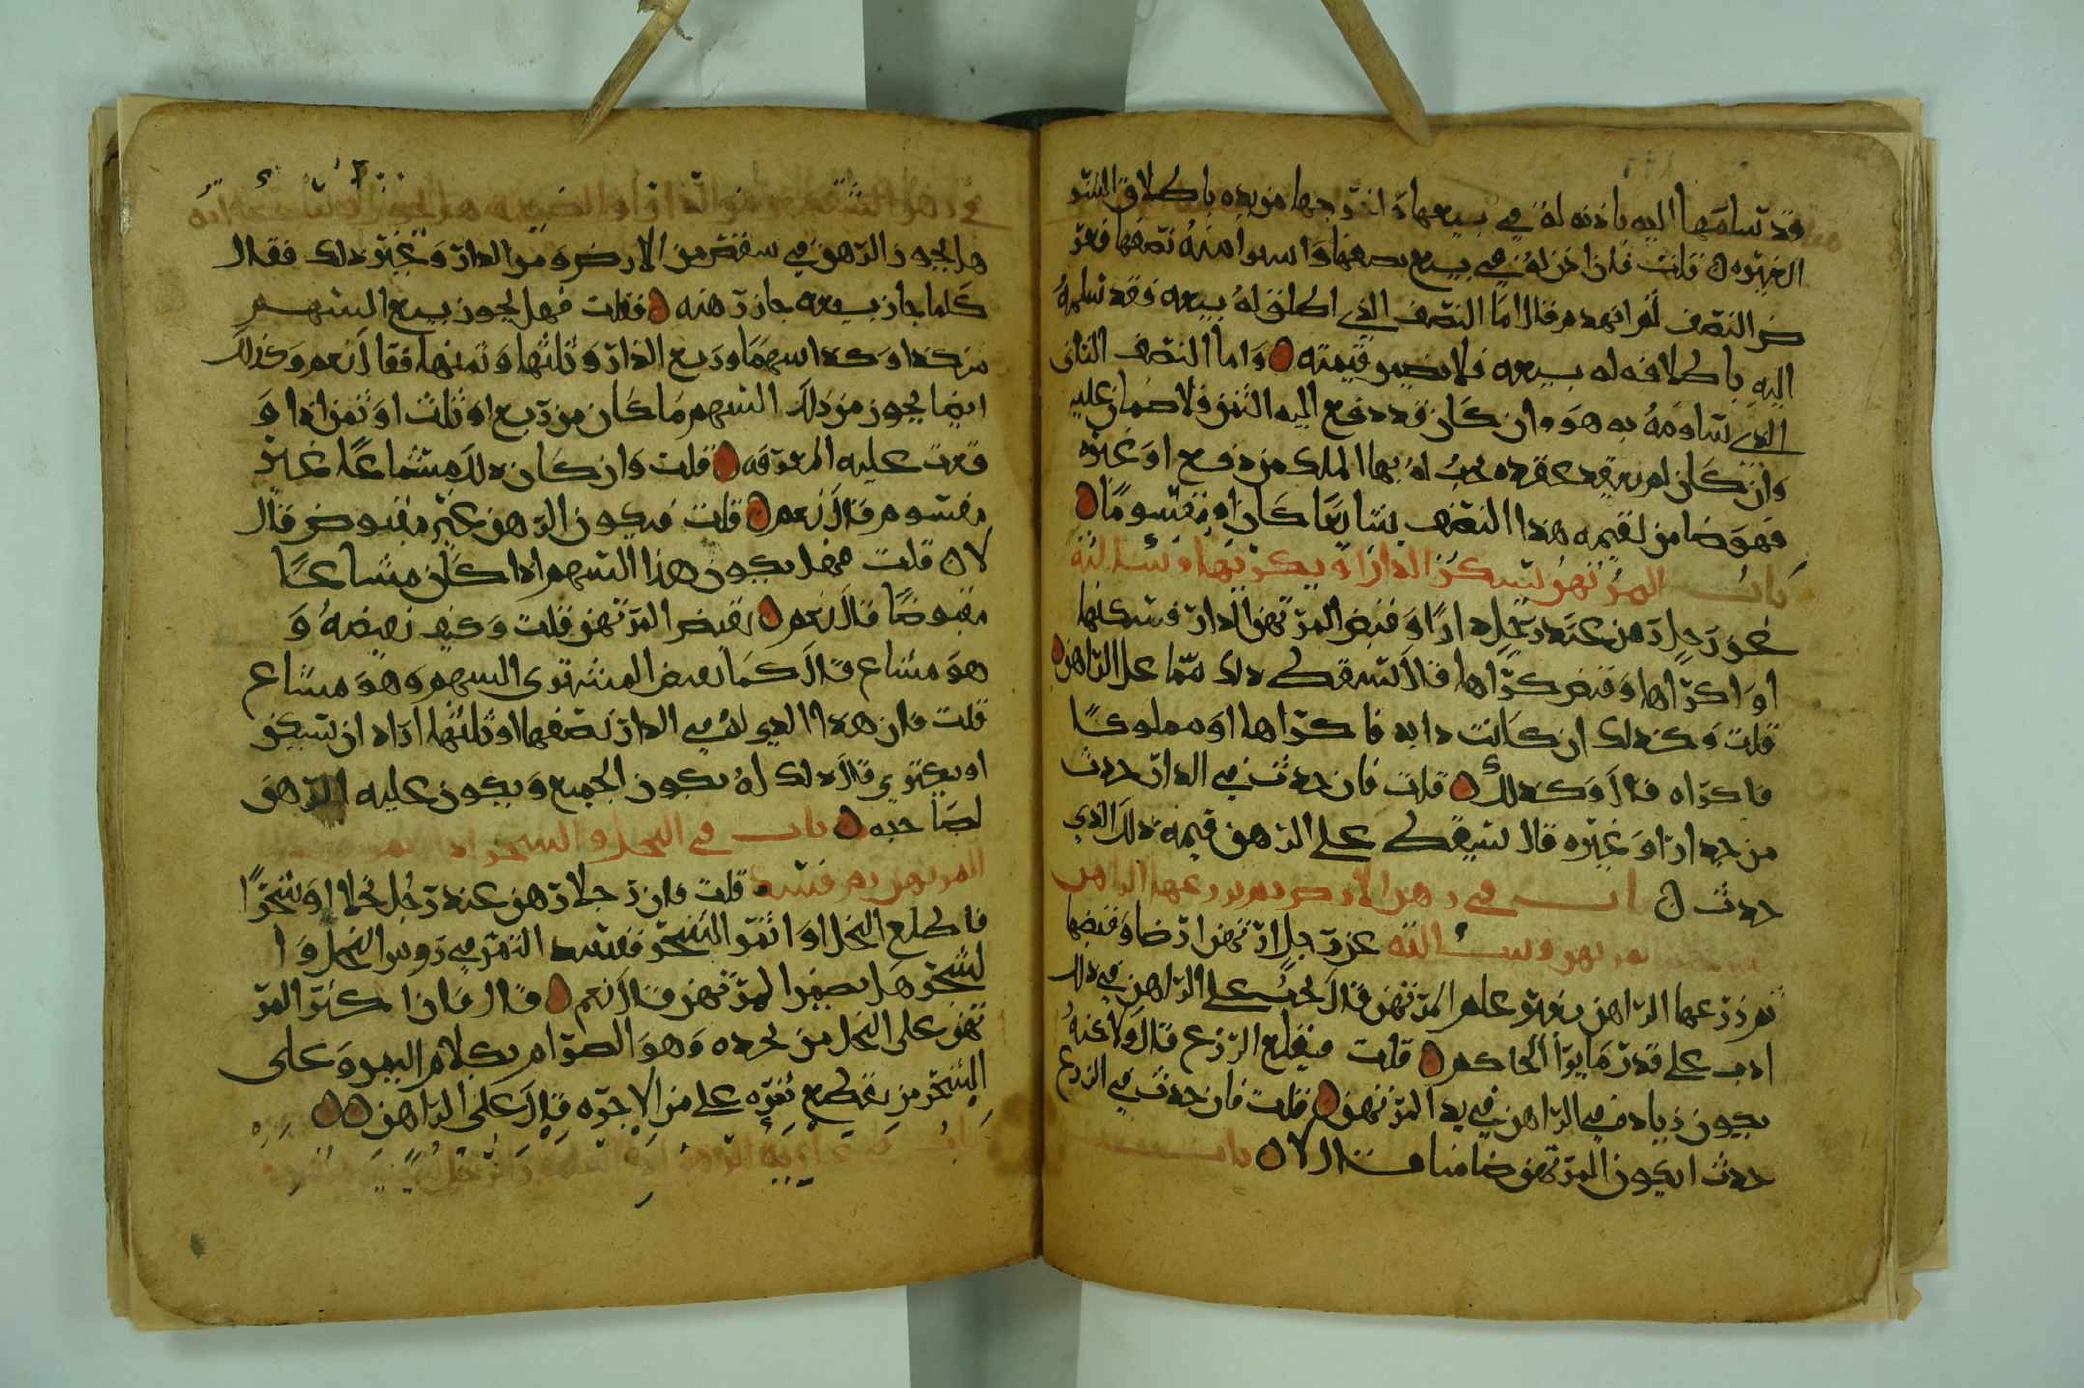 قد تسلمها اليه باذنه له في بيعها اخرجها من يده باطلاق المشتر
الغيره قلت فان اذن له في بيع نصفها واسوا منه نصفها فعر
ض النصف لغرا نهدم فقال اما النصف الذي اطلق له بيعه فقد تسلمه
اليه باطلاقه له بيعه فلا يضمن قيمته واما النصف الثاني
الذي تساومه به هو وان كان قد دفع اليه الثمن فلا ضمان عليه
وان كان لم يعقد عقده يجب له بها الملك من دفع او غيره
فهو ضامن لقيمه هذا النصف مشايعا كان او مقسوما
باب المرتهن يسكن الدار او يكريها وسالته
عن رجل رهن عند رجل دارا وقبض المرتهن الدار فسكنها
او اكراها وقبض كراها قال يسقط ذلك مما على الراهن
قلت وكذلك ان كانت دابه فاكراها او مملوكا
فاكراه قال وكذلك قلت فان حدث في الدار حدث
من جدار او غيره قال يسقط على الرهن قيمه ذلك الذي
حدث باب في رهن الارض ثم يزرعها الراهن
وسالته عن رجل ارتهن ارضا وقبضها
ثم زرعها الراهن بغير علم المرتهن قال يجب على الراهن في ذلك
ادب على قدر ما يرا الحاكم قلت فيقلع الزرع قال لا ولكنه
يكون زياده في الراهن في يد المرتهن قلت فان حدث في الزرع
حدث ايكون المرتهن ضامنا قال لا باب
في رهن الشقص من الدار او الضيعه هل يجوز وسالته
هل يجوز الرهن في سقص من الارض ومن الدار وغير ذلك فقال
كلما جاز بيعه جاز رهنه فقلت فهل يجوز بيع السهم
من كذا وكذا سهما وربع الدار وثلثها وثمنها فقال نعم وكذلك
ايضا يجوز من ذلك السهم ما كان من ربع او ثلث او ثمن اذا و
قعت عليه المعرفه قلت وان كان ذلك مشاعا غير
مقسوم قال نعم قلت فيكون الرهن غير مقبوض قال
لا قلت فهل يكون هذا السهم اذا كان مشاعا
مقبوضا قال نعم يقبض المرتهن قلت وكيف يقبضه و
هو مشاع قال كما يقبض المشتري السهم وهو مشاع
قلت فان هذا الذي له في الدار نصفها او ثلثها اراد ان يسكن
او يكتري قال ذلك له يكون الجميع ويكون عليه الرهن
لصاحبه باب في النخل والشجر
المرتهن ثم فسد قلت فان رجلا رهن عند رجل نخلا او شجرا
فاطلع النخل او اثمر الشجر ففسد الثمر في روس النخل و ا
لشجر هل يضمن المرتهن قال نعم قال فان اكتر المر
تهن على النخل من يجرده وهو الصرام بكلام اليمن وعلى
الشجر من يقطع ثمره على من الاجره قال على الراهن
باب